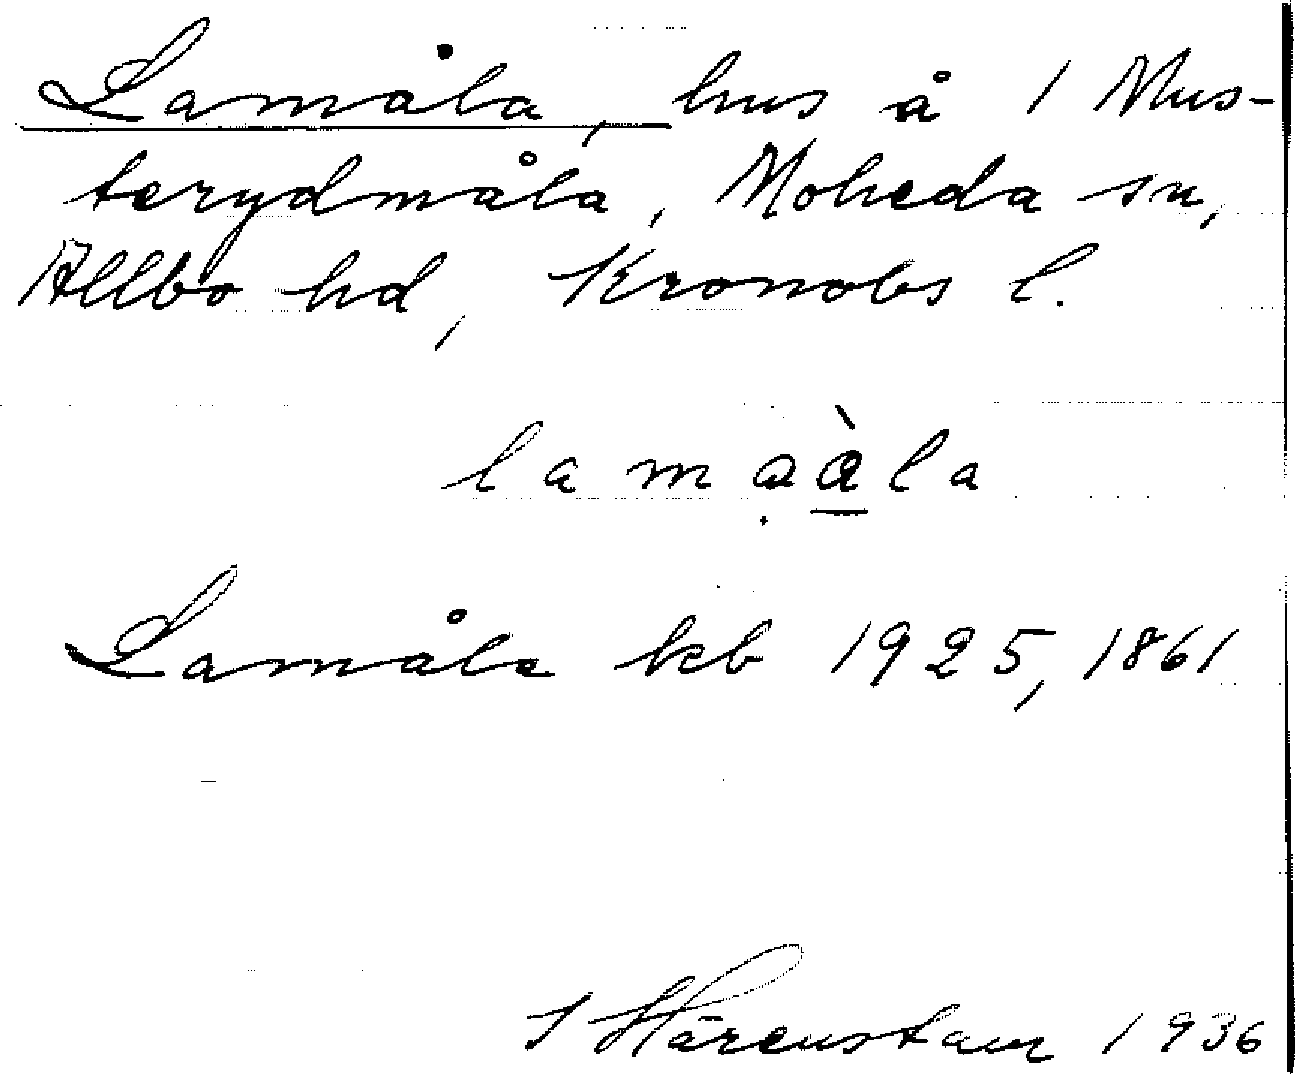 Lamåla, hus å 1 Mus-
terydmåla, Moheda sn,
Allbo hd, Kronobs l.
lamạàla
Lamåla kb 1925, 1861
J Hårenstam 1936